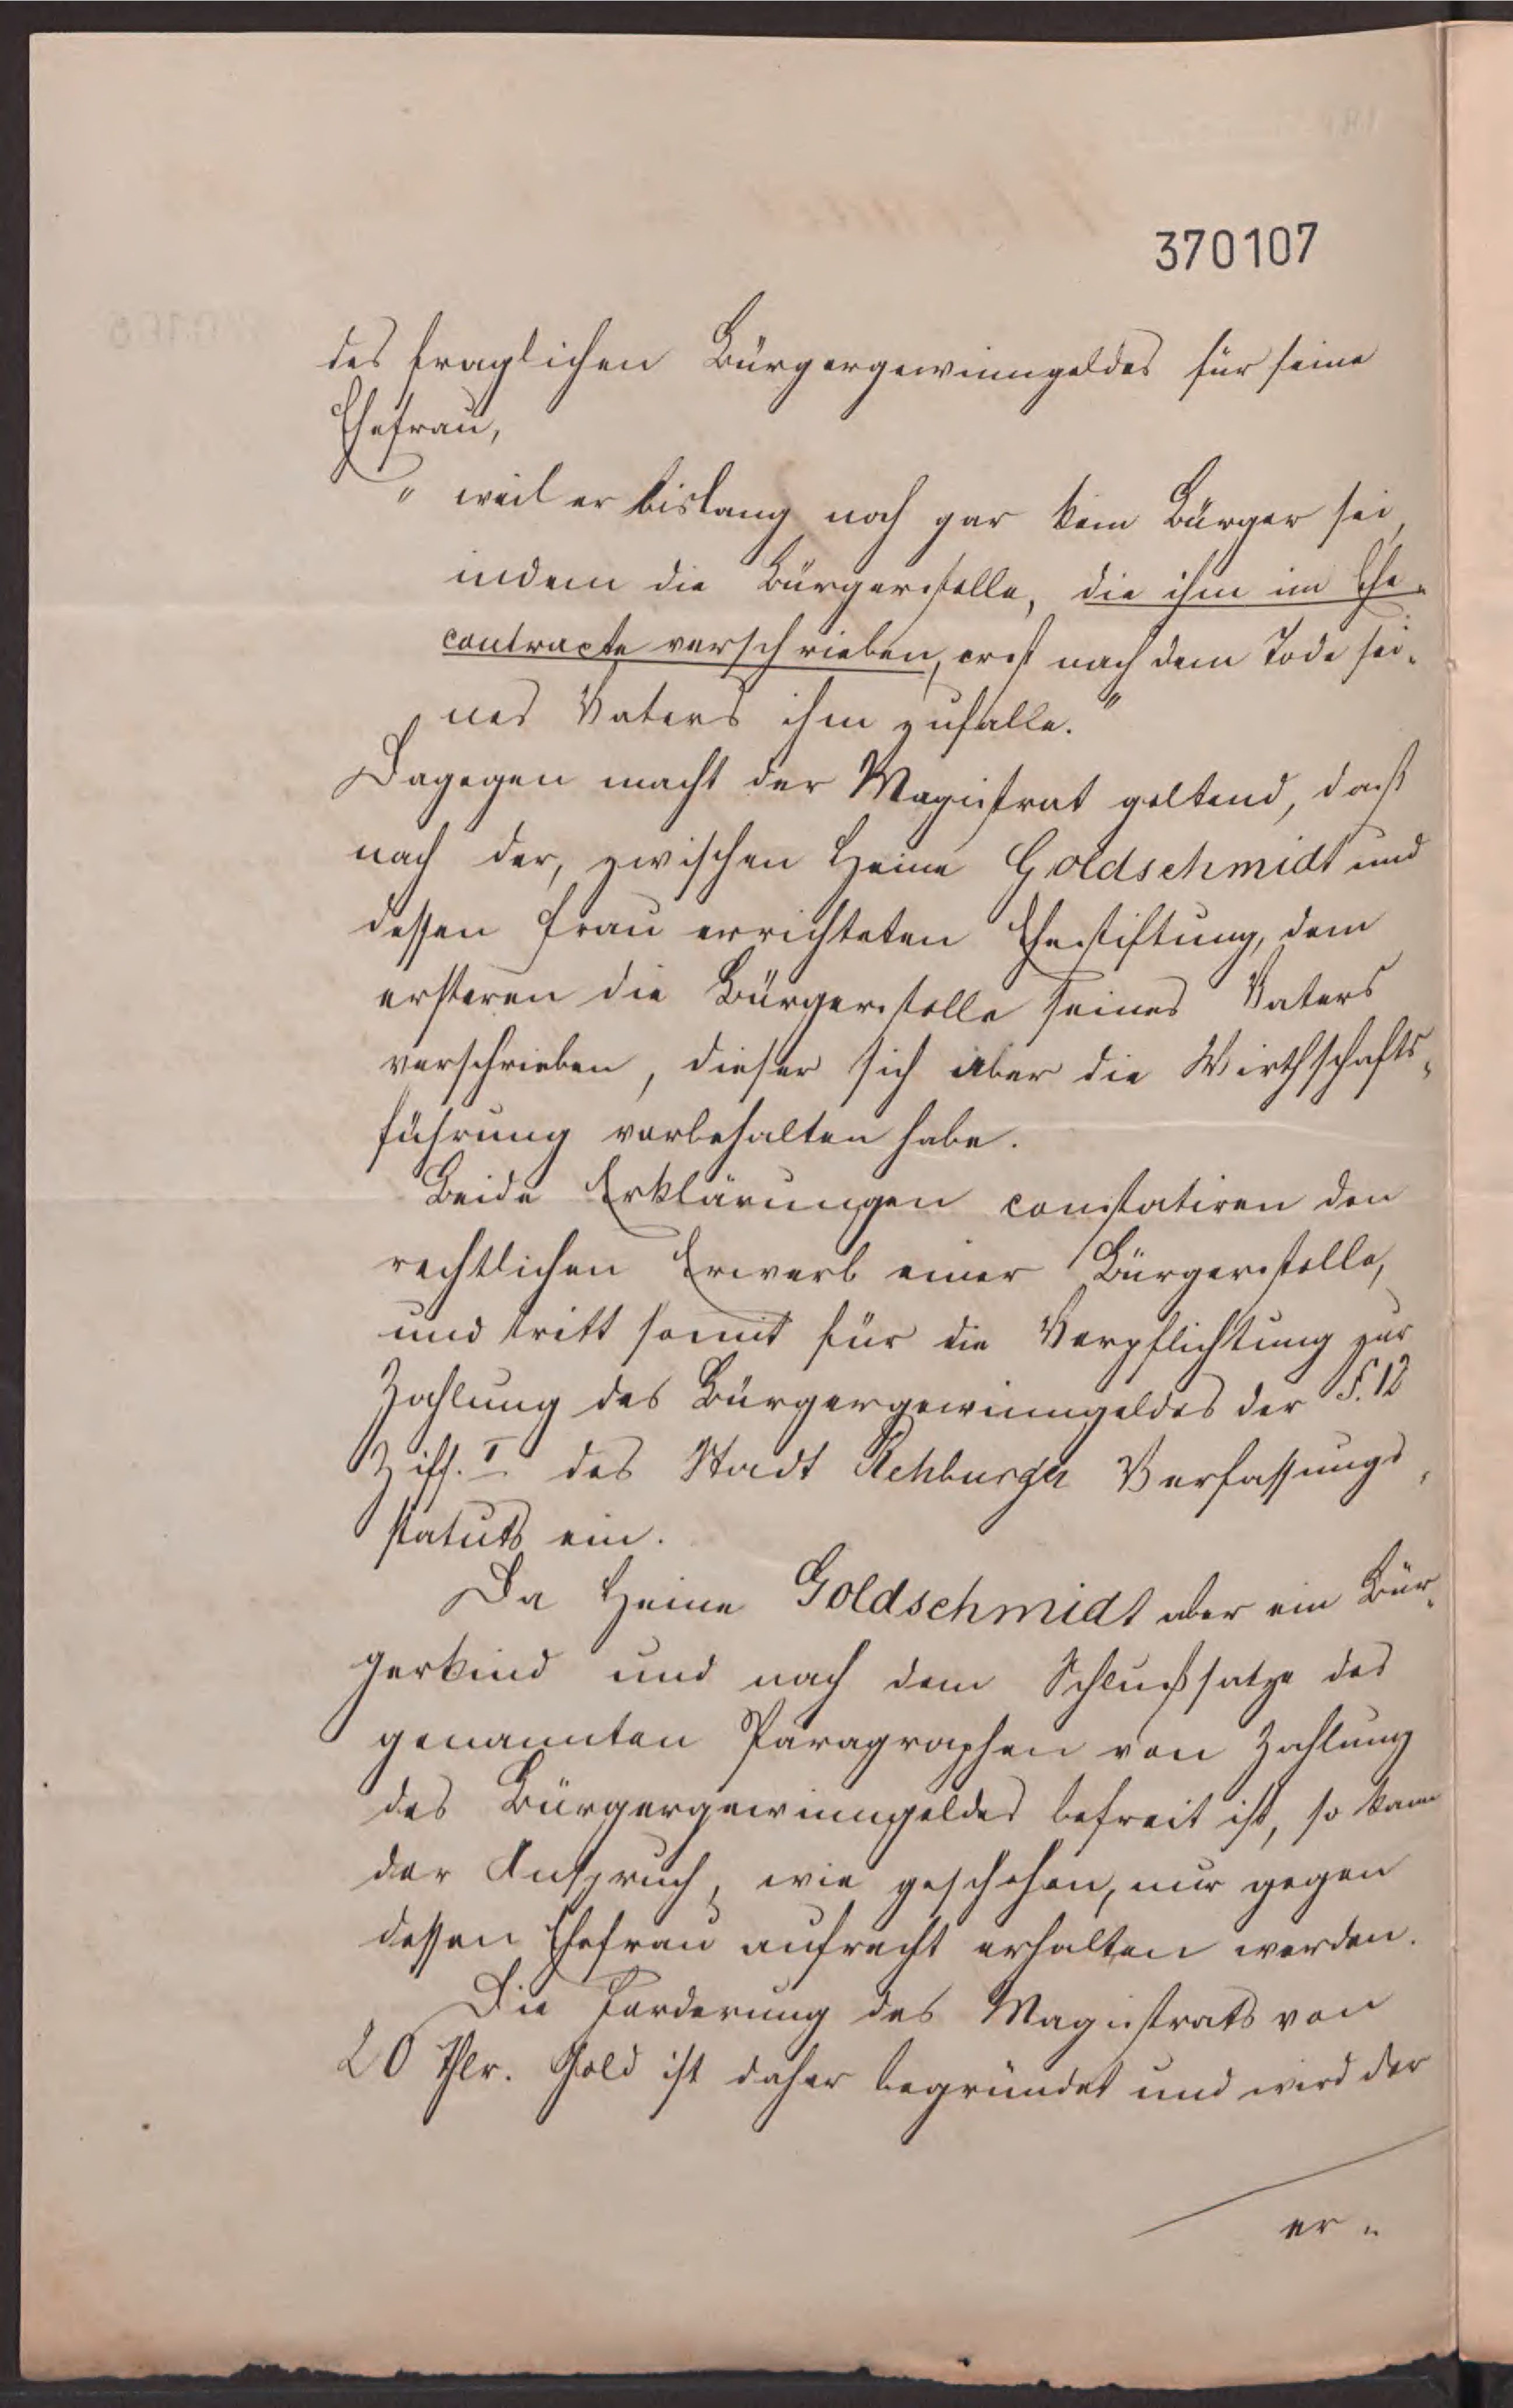 370107
des fraglichen Bürgergewinngeldes für seine
Ehefrau,
" weil er bislang noch gar kein Bürger sei,
indem die Bürgerstelle, die ihm im Ehe-
contracte verschrieben, erst nach dem Tode sei-
nes Vaters ihm zufalle."
Dagegen macht der Magistrat geltend, daß
nach der, zwischen Heine Goldschmidt und
dessen Frau errichteten Ehestiftung, dem
ersteren die Bürgerstelle seines Vaters
verschrieben, dieser sich aber die Wirthschafts-
führung vorbehalten habe.
Beide Erklärungen constatiren den
rechtlichen Erwerb einer Bürgerstelle,
und tritt somit für die Verpflichtung zur
Zahlung des Bürgergewinngeldes der §. 12
Ziff. I des Stadt Rehburger Verfassungs-
statuts ein.
Da Heine Goldschmidt aber ein Bür-
gerkind und nach dem Schlußsatze des
genannten Paragraphen von Zahlung
des Bürgergewinngeldes befreit ist, so kann
der Anspruch, wie geschehen, nur gegen
dessen Ehefrau aufrecht erhalten werden.
Die Forderung des Magistrats von
20 Thlr. Gold ist daher begründet und wird der
er-